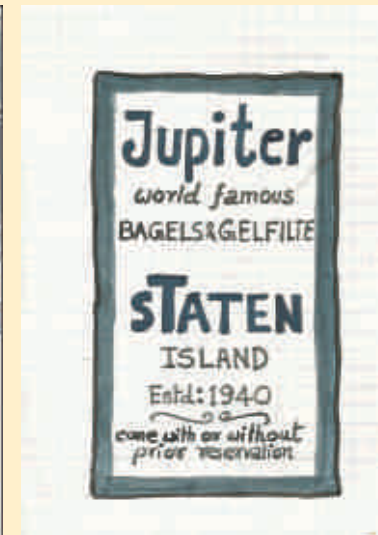 Jupiter
world famous
BAGELS&GELFILTE
STATEN
ISLAND
Estd:1940
come with or without
prior reservation